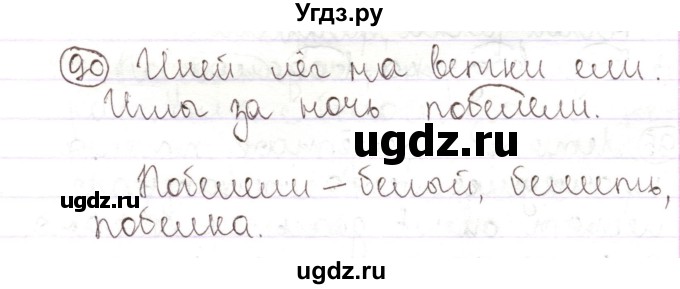 Угдз.ру
90 Иней лёг на ветки ели.
Иглы за ночь побелели.
ugdz.ru
ugdz.ru
Побелели – белый, белить,
ugdz.ru
ugdz.ru
побелка.
ugdz.ru